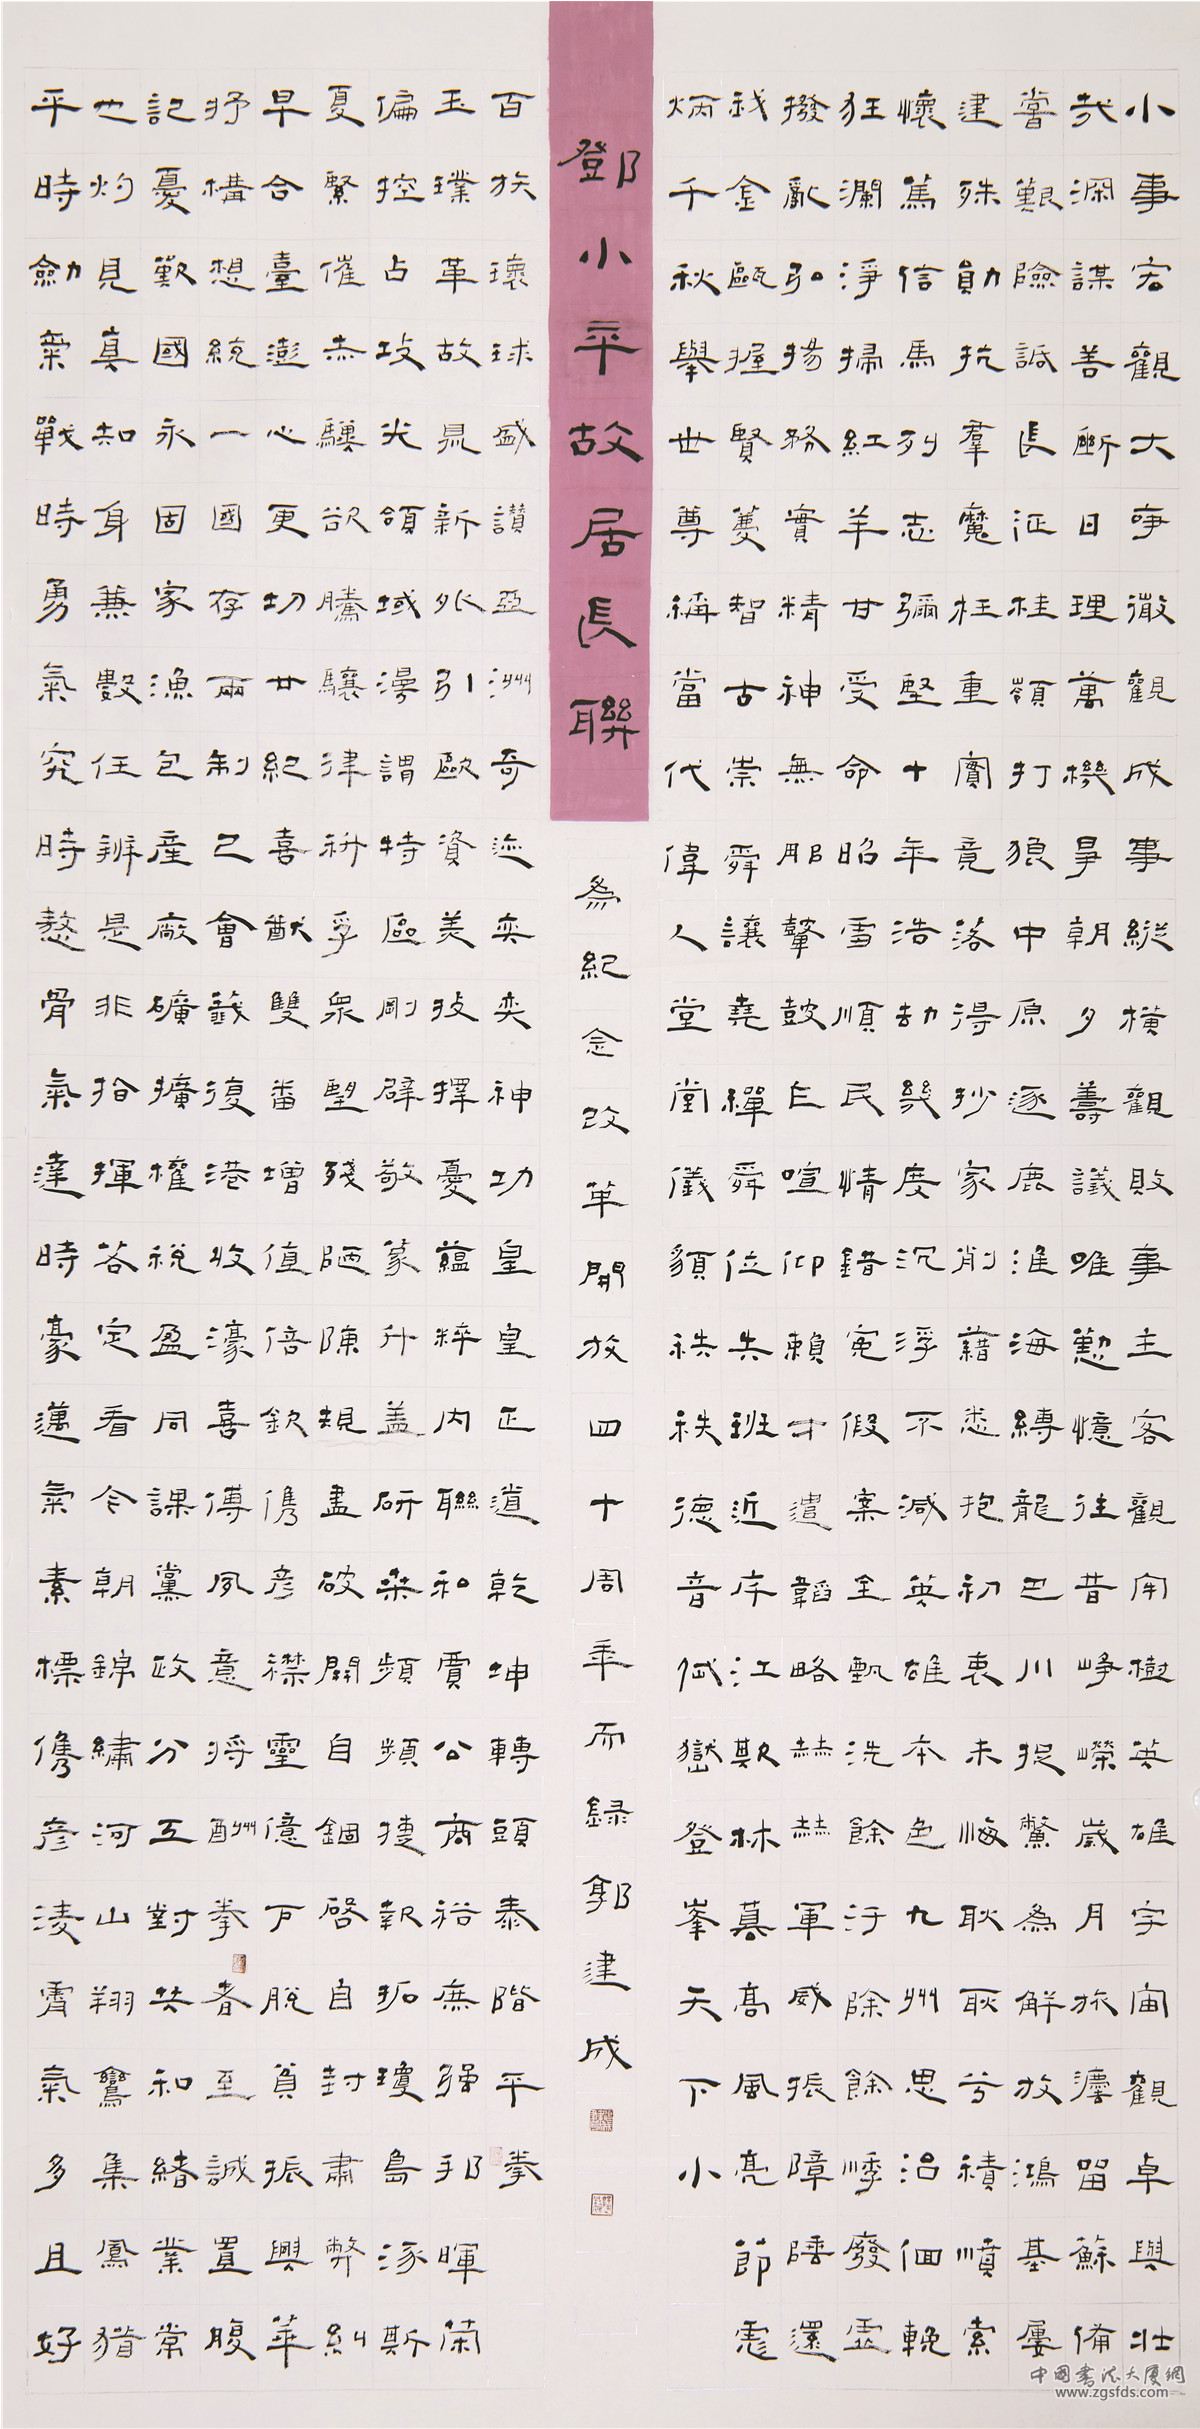 小事宏觀大事徹觀成事縱橫觀敗事主客觀用樹英雄宇宙觀卓與壯
哉深謀善斷日理萬機旱朝夕籌議唯懃憶往昔崢嶸歲月旅灋留蘇備
嘗艱險詆長征桂嶺打狼中原逐鹿淮海縛龍巴川捉鱉為解放鴻基屢
建殊勛抗羣魔枉重實竟落得抄家削藉悉抱初衷未悔耿耿兮積憤素
懷篤信馬列志彌堅十年浩劫幾度沉浮不減英雄本色九州思治佪輓
狂瀾淨掃紅羊甘受命昭雪順民情錯冤假案全甄洗餘汙除餘悸廢虛
撥亂弘揚務實精神無那鼙鼓乍喧仰賴才遣韜略赫赫軍威振障陲還
我金甌握賢智古崇舜讓堯繟舜位共班近序江斯林莫高風亮節彪
炳千秋舉世尊稱當代偉人堂堂儀貌秩秩德音低嶽登峯天下小
鄧小平故居長聯
為紀念改革開放四十周年而録郭建成
平時勍氣戰時勇氣究時驁骨氣達時豪邁氣素標儁彥凌霄氣多且好
也灼見真知身兼數任辨是非指揮若定看今朝錦繡河山翔鸞集鳳猶
記憂歎國永固家漁包產廠礦擴權稅盈同課黨政分工對共和緒業常
抒構想統一國存兩制已會籤復港收濠喜傳夙意將酬拳者至誠置腹
早合臺澎心更切廿紀喜猷雙番增值倍欽儁彥襟靈億下脫貧振興華
夏緊催赤驥欲騰驤律科孚眾殘陋陳規盡破開自錮啓自封肅弊糾
偏控占攻尖領域漫謂特區剛辟敬篆升蓋研桑頻頻捷報拓瓊島涿斯
玉璞革故晁新外引歐資美技擇憂蘊粹內聯和賈公商裕庶強邦暉榮
百族瓌球盛讚亞洲奇迹奕奕神功皇皇正道乾坤轉頭泰階平拳
中国書法大厦網
www.zgsfds.com